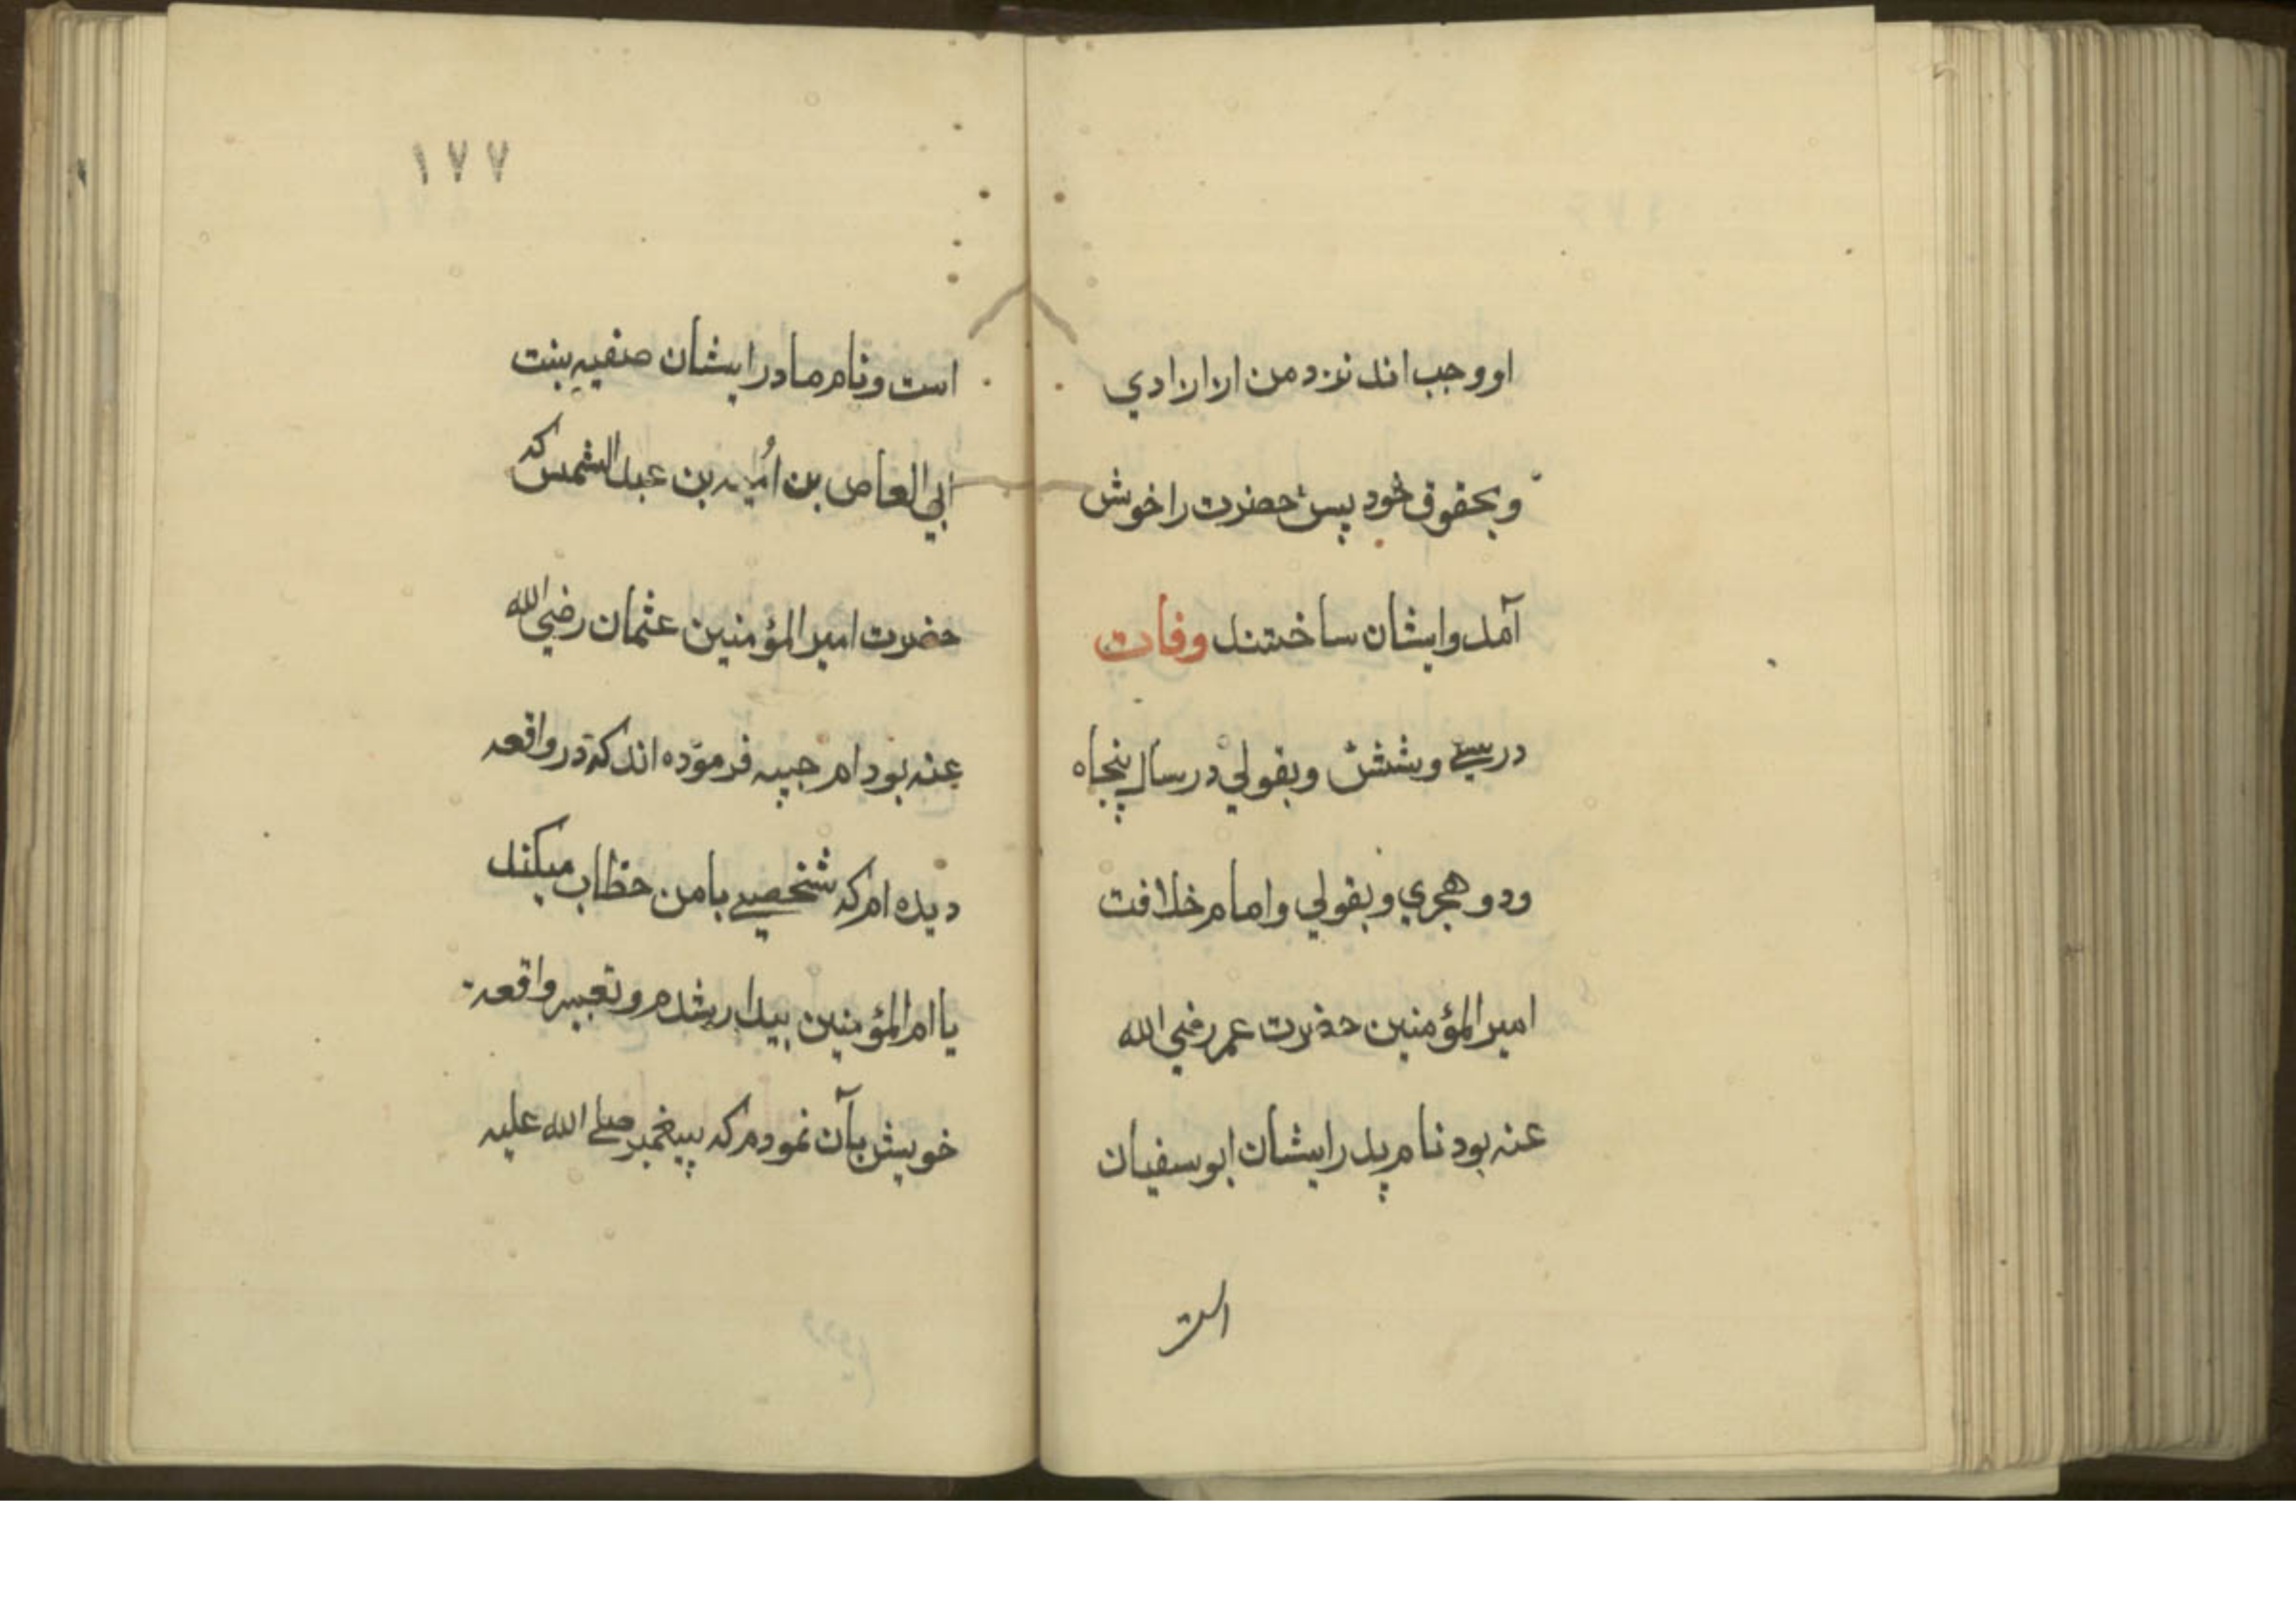 او وجب اند نزد من از ازادي
وبحقوق خود پس حضرت را خوش
آمد وایشان ساختند وفات
در سے وشش وبقولي در سال پنجاه
ودو هجري وبقولي وامام خلافت
امیر المؤمنین حضرت عمر رضي الله
عنه بود نام پدر ایشان ابو سفیان
است
۱۷۷
است ونام مادر ایشان صفیه بنت
ابي العاص بن اُمیه بن عبد الشمس که
حضرت امیر المؤمنین عثمان رضي الله
عنه بود ام حبیبه فرموده اند که در واقعه
دیده ام که شخصے با من خطاب میکند
یا ام المؤمنین بیدار شدم و تعبیر واقعه
خویش بآن نمودم که پیغمبر صلے الله علیه